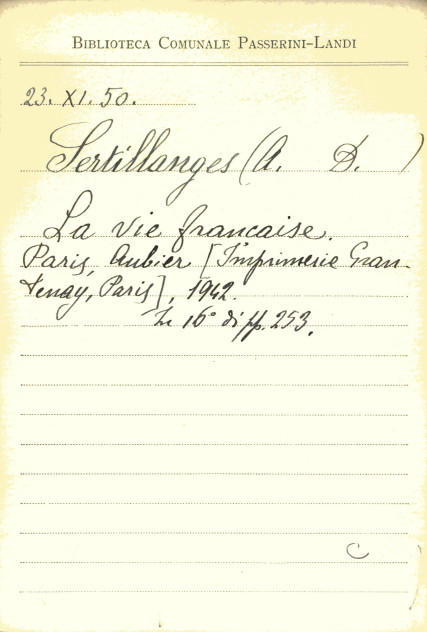 BIBLIOTECA COMUNALE PASSERINI-LANDI
23. XI. 50.
Sertillanges (A. D. )
La vie francaise.
Paris, Aubier [Imprimerie Gran-
tenay, Paris], 1942.
In 16° di pp. 253.
C